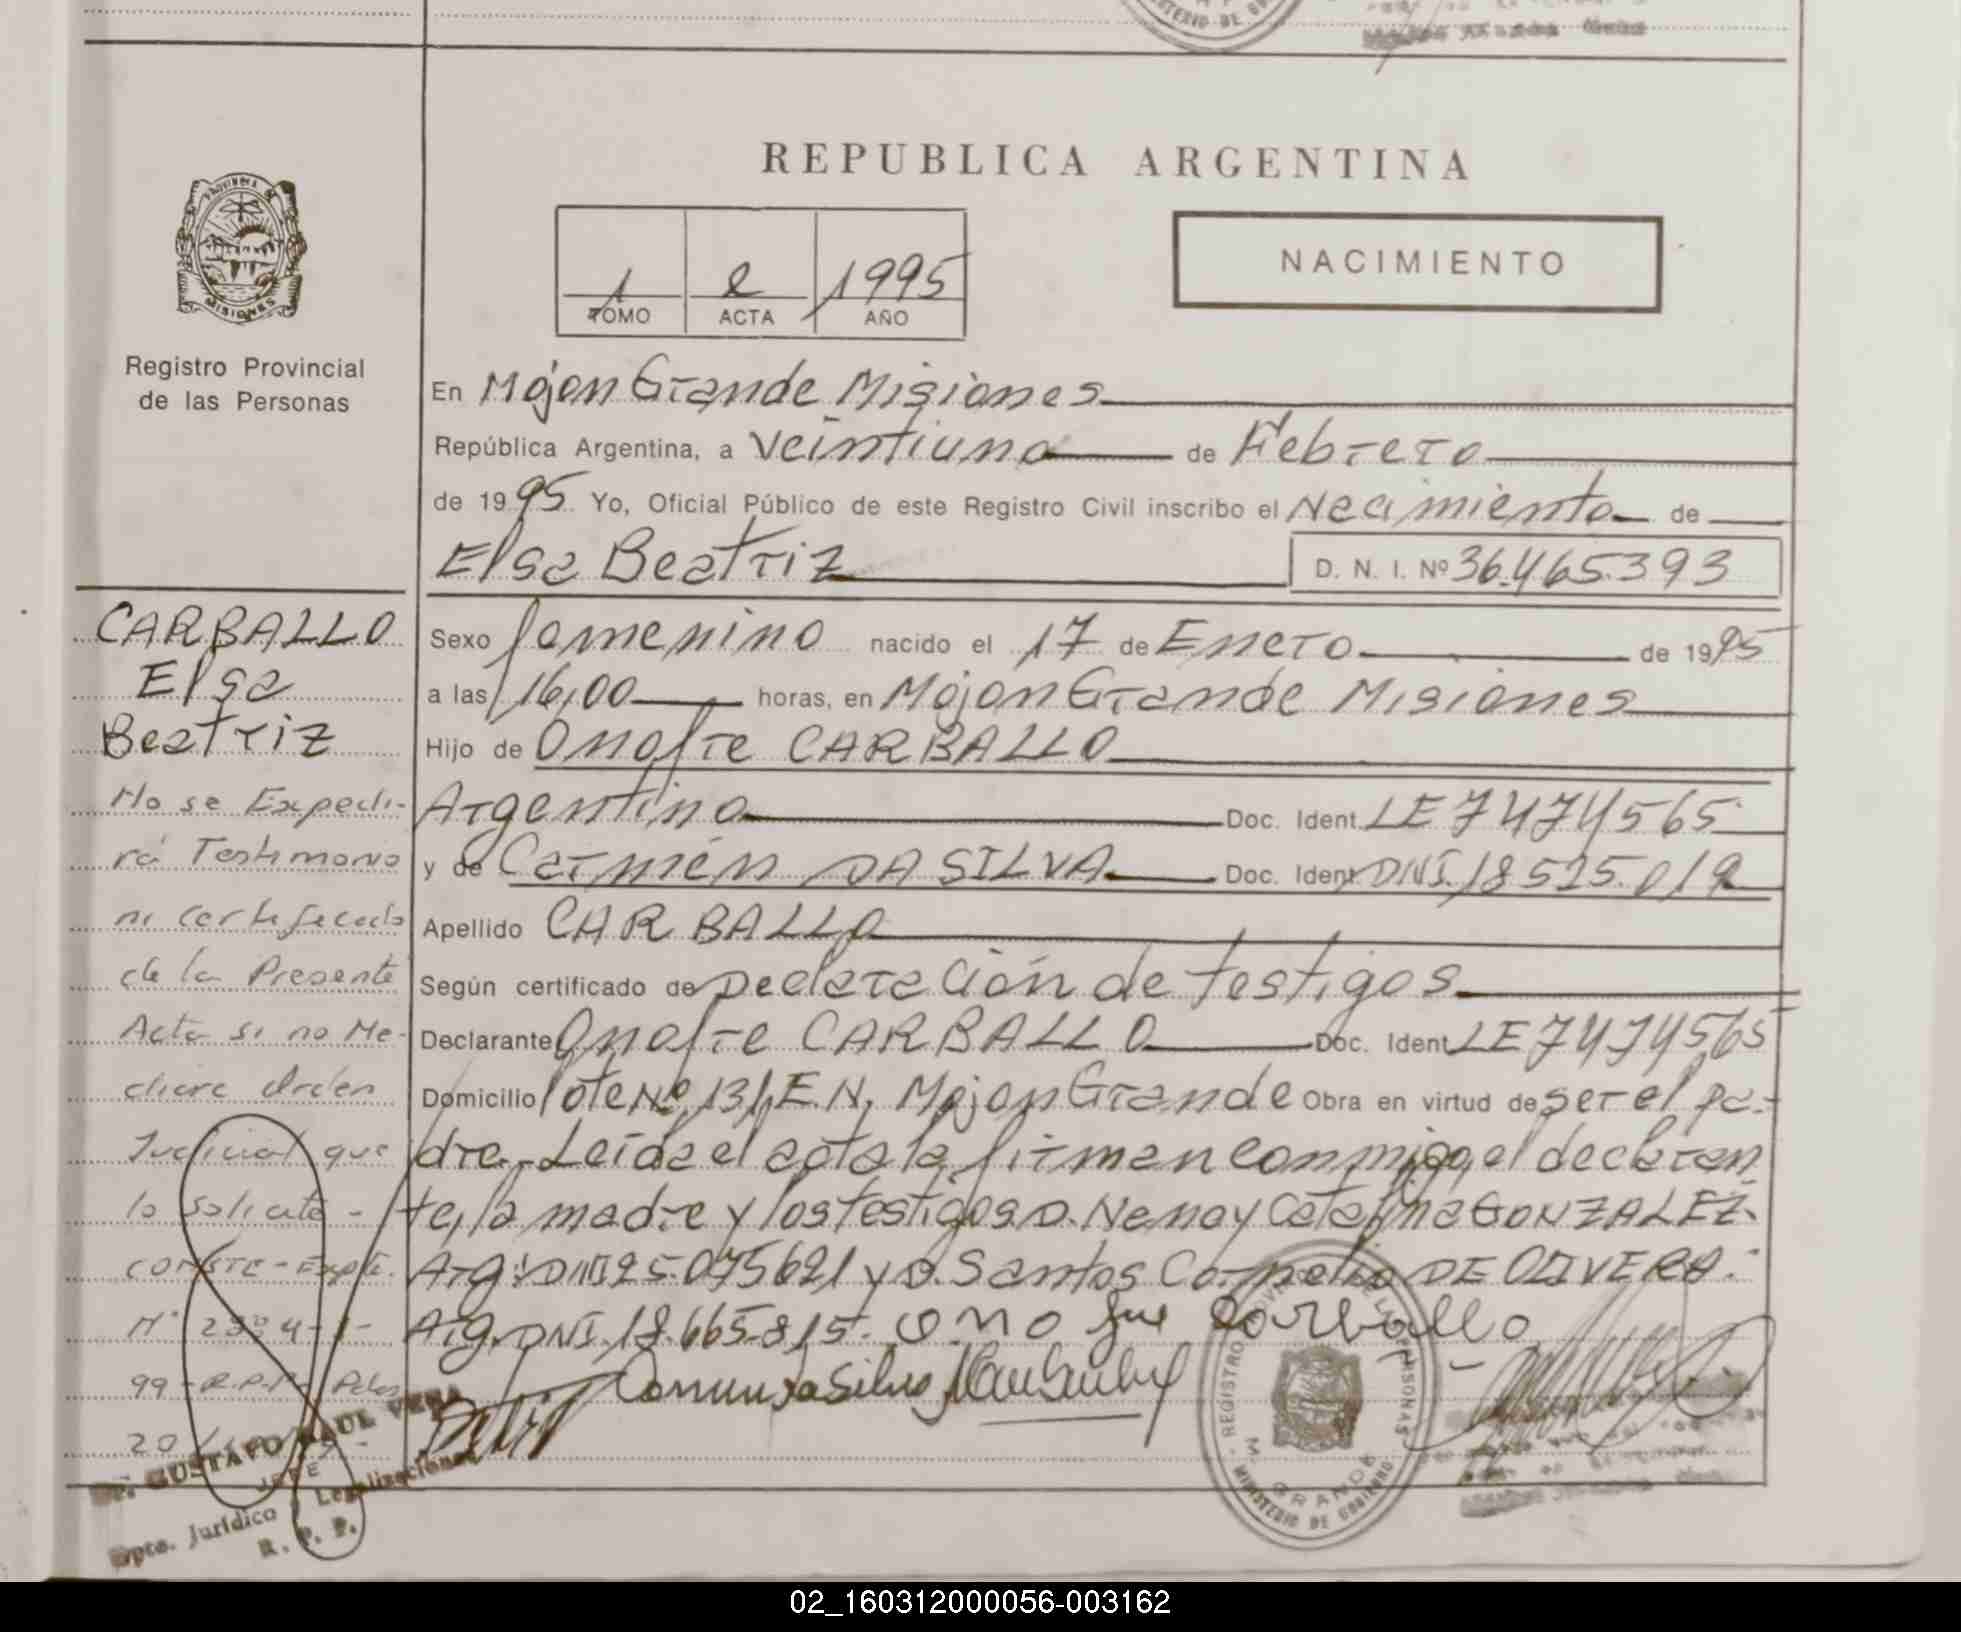 REPUBLICA ARGENTINA
PROVINCIA
MISIONES
Registro Provincial
de las Personas
1 2 1995
TOMO ACTA AÑO
NACIMIENTO
En Mojon Grande Misiones
República Argentina, a Veintiuno de Febrero
de 1995 Yo, Oficial Público de este Registro Civil inscribo el Nacimiento de
Elsa Beatriz D. N. I. Nº 36.465.393
CARBALLO
Elsa
Beatriz
Sexo femenino nacido el 17 de Enero de 1995
a las 16,00 horas, en Mojon Grande Misiones
Hijo de Onofre CARBALLO
Argentino Doc. Ident. LE 7474565
y de Carmen DA SILVA Doc. Ident. DNI. 18.525.019
Apellido CARBALLO
Según certificado de Declaración de testigos
Declarante Onofre CARBALLO Doc. Ident. LE 7474565
Domicilio lote Nº 131, E.N. Mojon Grande Obra en virtud de ser el pa-
dre.- Leída el acta la firman conmigo, el declaran
te, la madre y los testigos D. Catalina GONZALEZ.
Arg. DNI 25.075621 y D. Santos Cornelio DE OLIVERA.
Arg. DNI. 18.665.815. Carballo
No se Expedi-
rá Testimonio
ni certificado
de la Presente
Acta si no Me-
diare Orden
Judicial que
lo solicite -
CONSTE - Expte.
Nº
99 - R.P.P. Pdas
20
Dr. GUSTAVO RAUL VERA
JEFE
Dpto. Jurídico y Legalizaciones
R. P. P.
REGISTRO PROVINCIAL DE LAS PERSONAS
M. GRANDE
MINISTERIO DE GOBIERNO
02_160312000056-003162